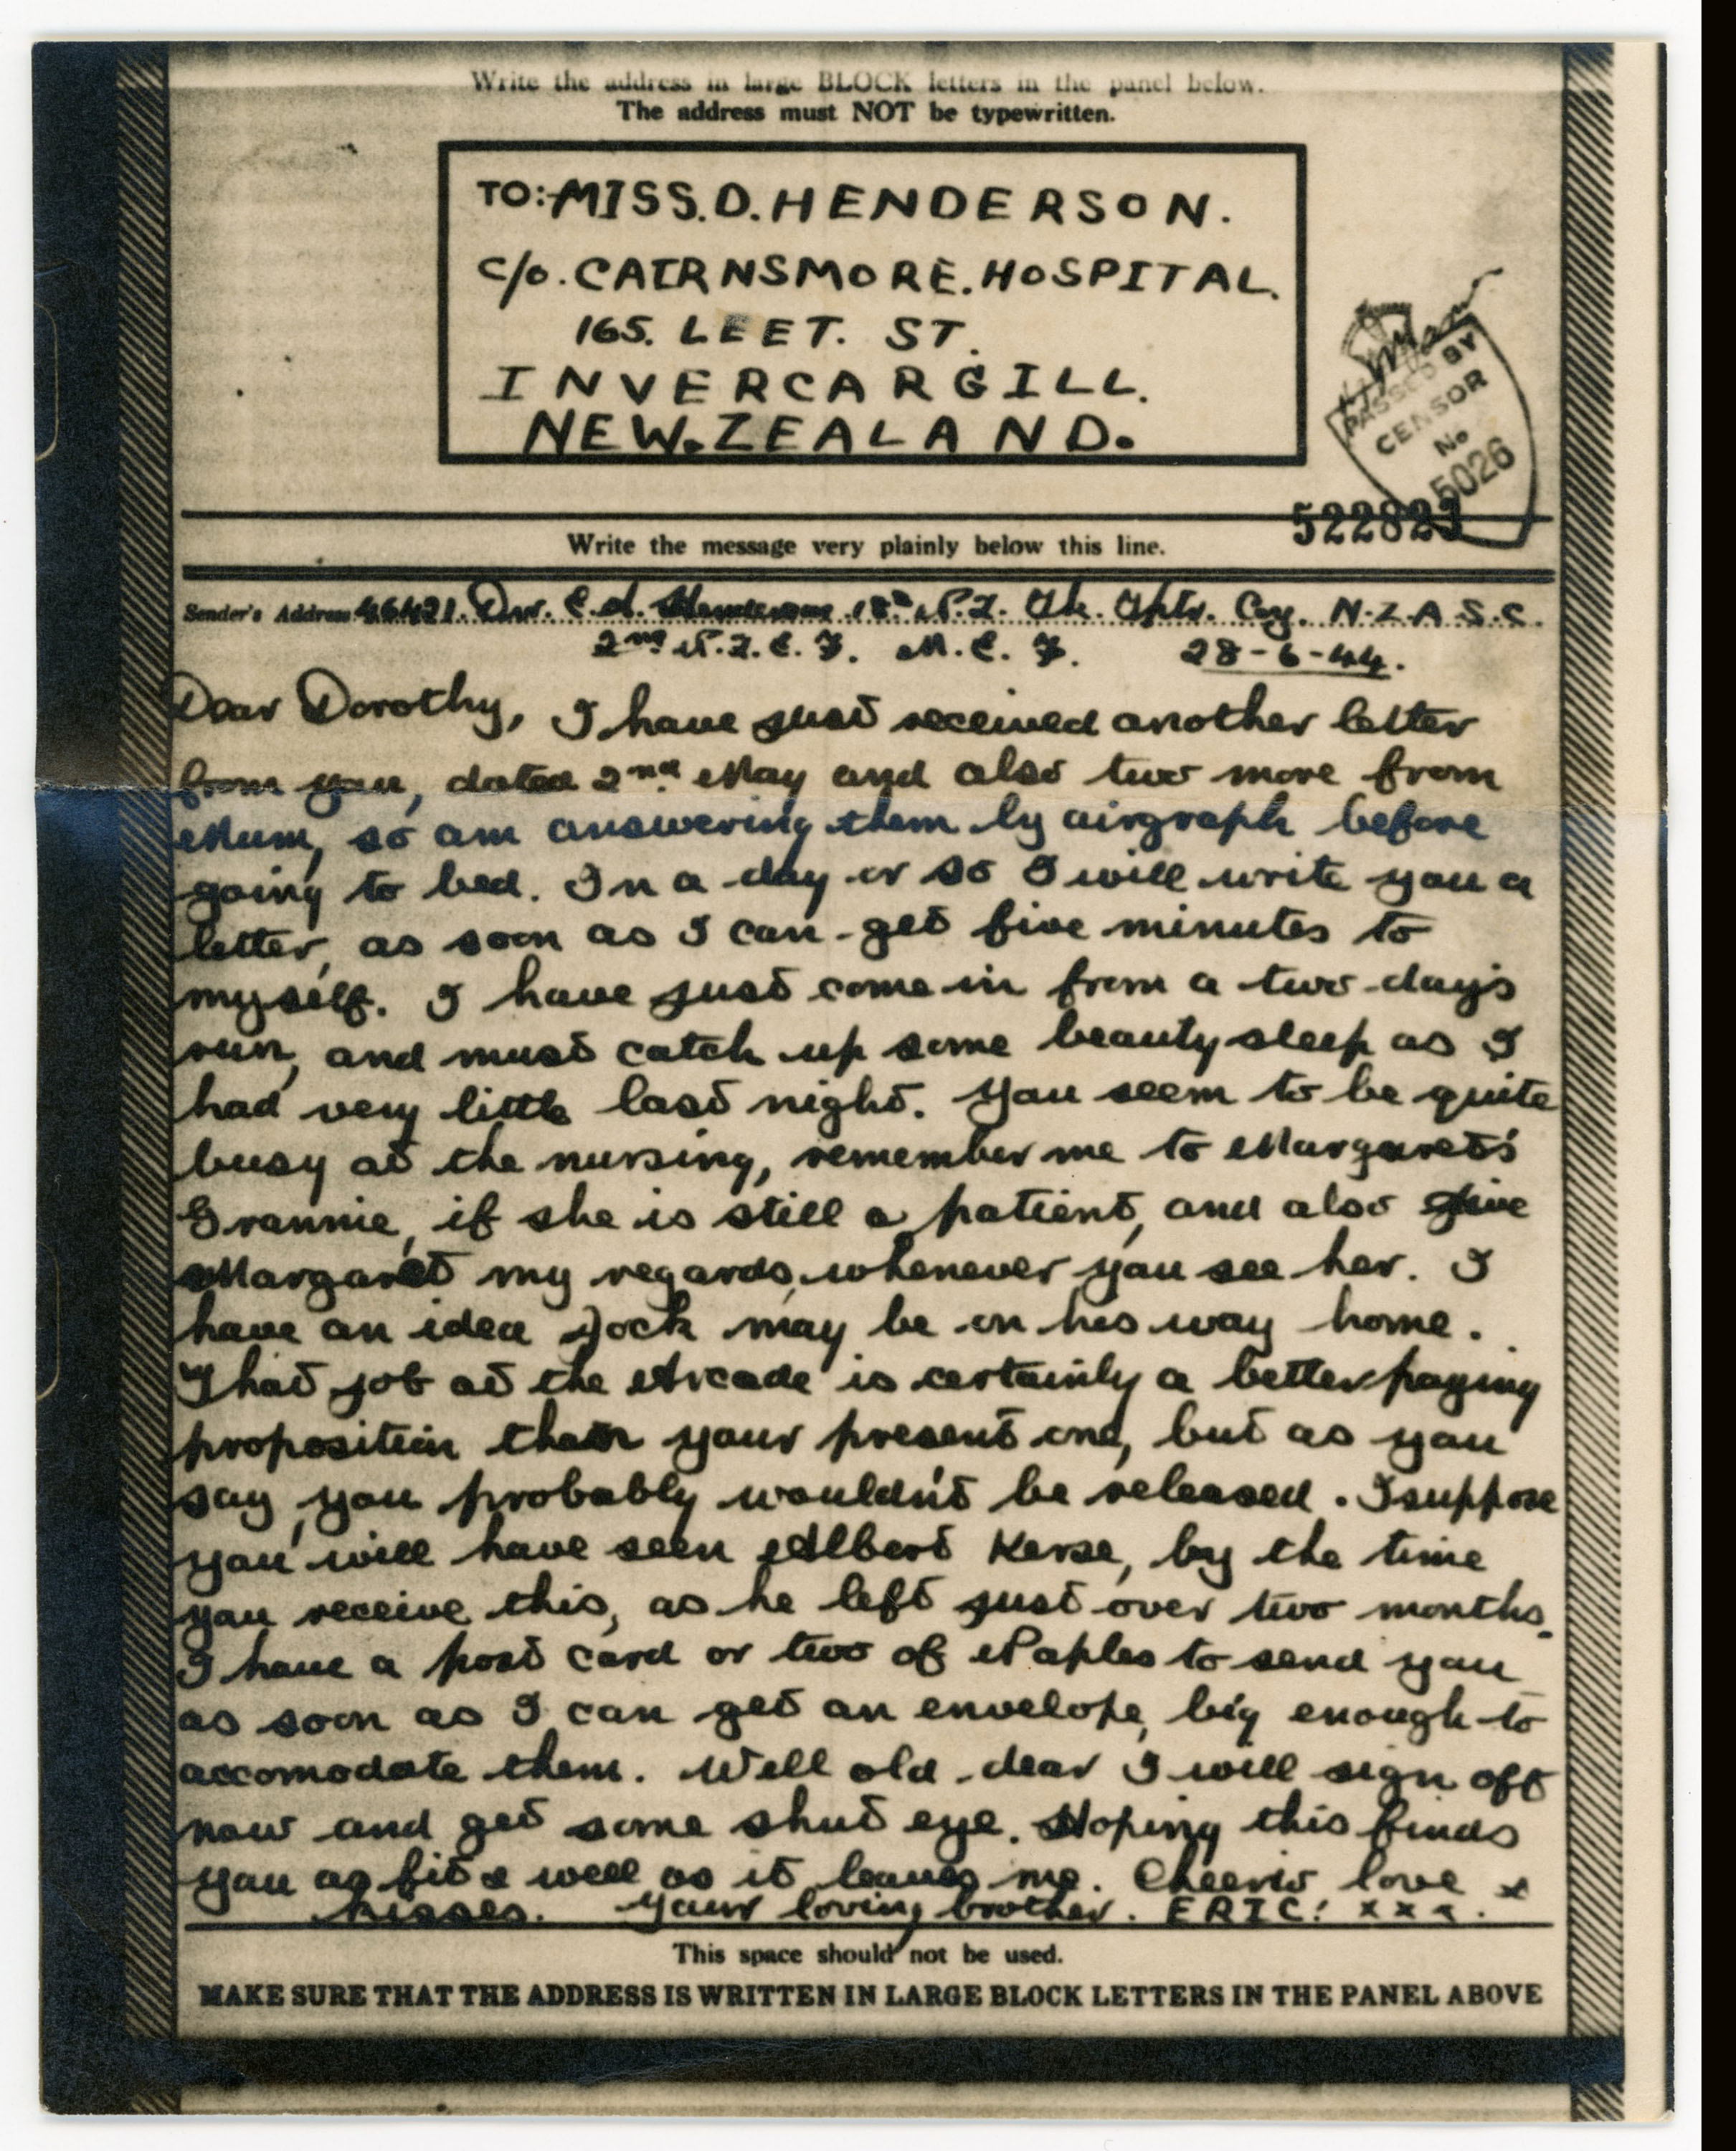 Write the address in large BLOCK letters in the panel below.
The address must NOT be typewritten.
TO:- MISS. D. HENDERSON.
C/O. CAIRNSMORE. HOSPITAL.
165. LEET. ST.
INVERCARGILL.
NEW. ZEALAND.
PASSED BY
CENSOR
No
5026
52282
Write the message very plainly below this line.
Sender's Address 46421. Dvr. E. A. Henderson 18th N.Z. Tk. Tptr. Coy. N.Z.A.S.C.
2nd N.Z.E.F. M.E.F. 28-6-44.
Dear Dorothy, I have just received another letter
from you, dated 2nd May and also two more from
Mum, so am answering them by airgraph before
going to bed. In a day or so I will write you a
letter, as soon as I can get five minutes to
myself. I have just come in from a two-day's
run, and must catch up some beauty sleep as I
had very little last night. You seem to be quite
busy at the nursing, remember me to Margaret's
Grannie, if she is still a patient, and also give
Margaret my regards, whenever you see her. I
have an idea Jock may be on his way home.
That job at the Arcade is certainly a better paying
proposition than your present one, but as you
say, you probably wouldn't be released. I suppose
you will have seen Albert Kerse, by the time
you receive this, as he left just over two months.
I have a post card or two of Naples to send you
as soon as I can get an envelope, big enough to
accomodate them. Well old dear I will sign off
now and get some shut eye. Hoping this finds
you as fit & well as it leaves me. Cheerio love &
kisses. Your loving brother. ERIC! x x x.
This space should not be used.
MAKE SURE THAT THE ADDRESS IS WRITTEN IN LARGE BLOCK LETTERS IN THE PANEL ABOVE